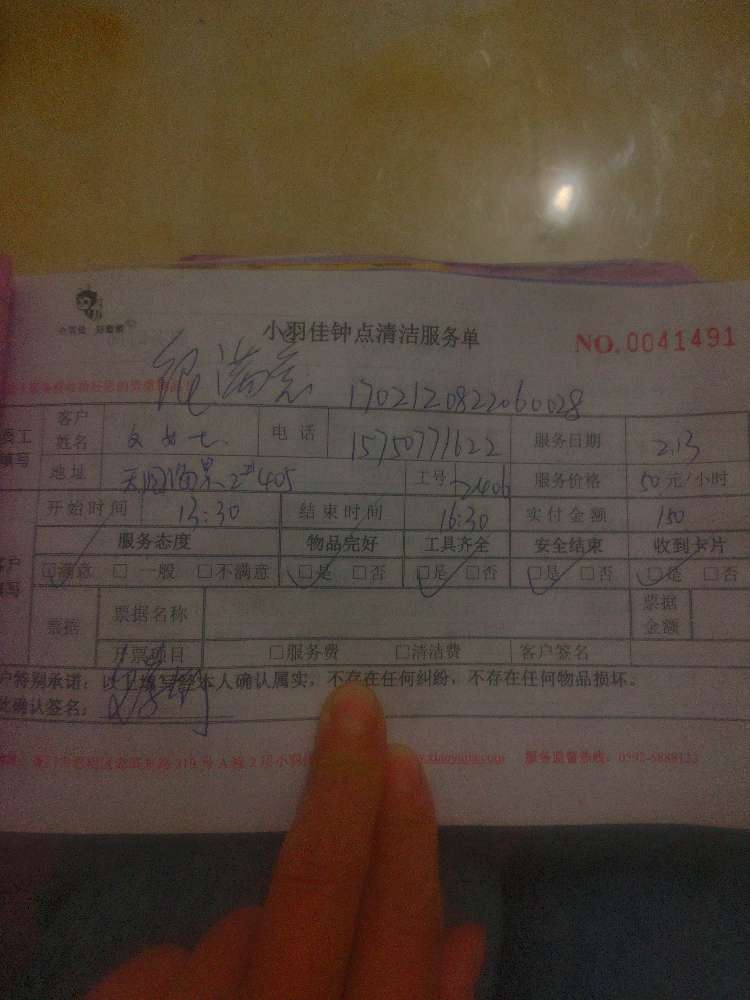 小羽佳 好管家
小羽佳钟点清洁服务单
NO. 0041491
很满意 1702120822060028
客户姓名 文女士 电话 15750771622 服务日期 2.13
地址 405 工号 2406 服务价格 50元/小时
开始时间 13:30 结束时间 16:30 实付金额 150
服务态度 物品完好 工具齐全 安全结束 收到卡片
□满意 □一般 □不满意 □是 □否 □是 □否 □是 □否 □是 □否
票据 票据名称 票据金额
开票项目 □服务费 □清洁费 客户签名
户特别承诺：以上填写经本人确认属实，不存在任何纠纷，不存在任何物品损坏。
此确认签名：
319号A栋2层小羽 服务监督热线：0592-5888123